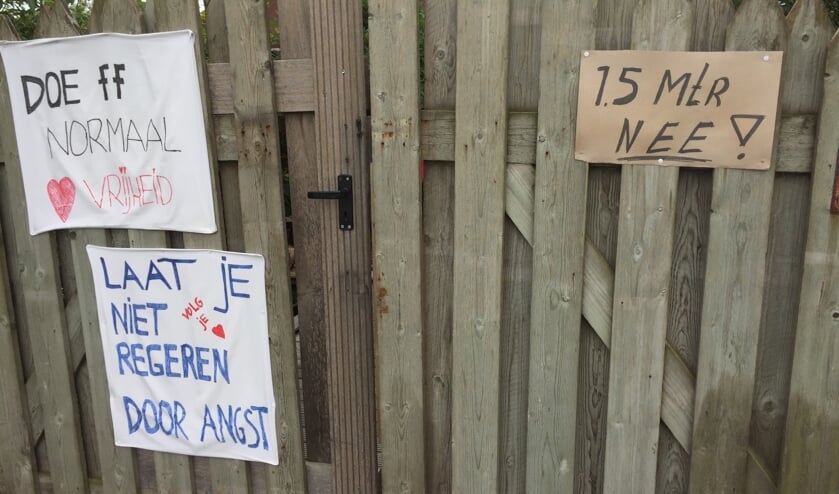 DOE ff
NORMAAL
VRIJHEID
LAAT je
NIET
VOLG
je
REGEREN
DOOR ANGST
1.5 MtR
NEE!